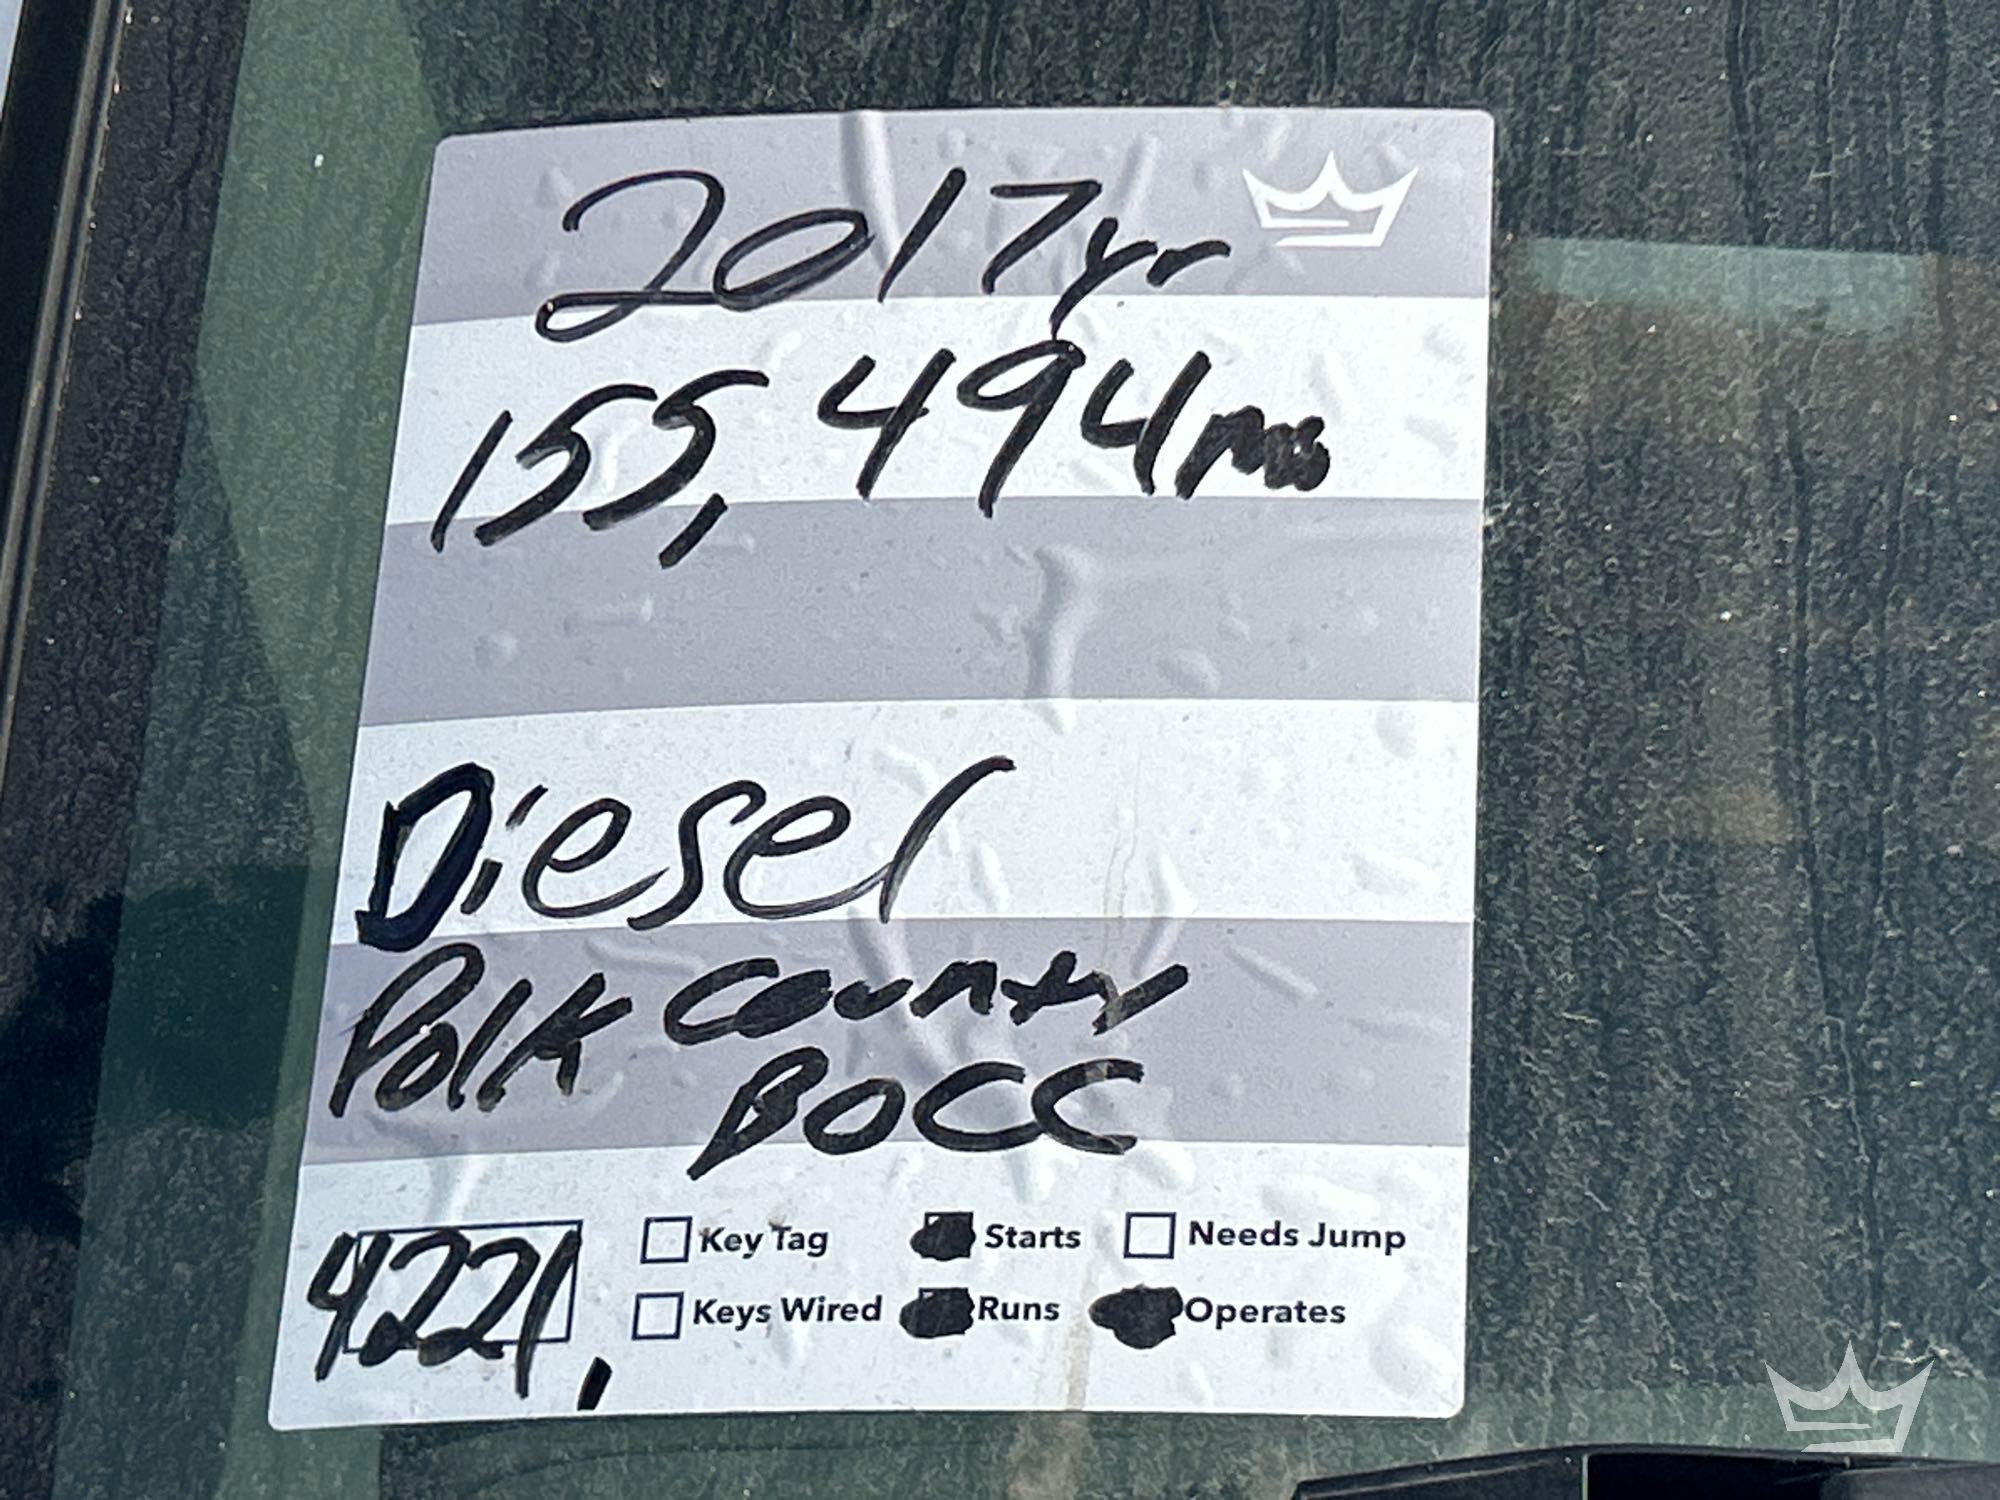 2017yr
155,494mi
Diesel
Polk County
BOCC
4221,
Key Tag Starts Needs Jump
Keys Wired Runs Operates